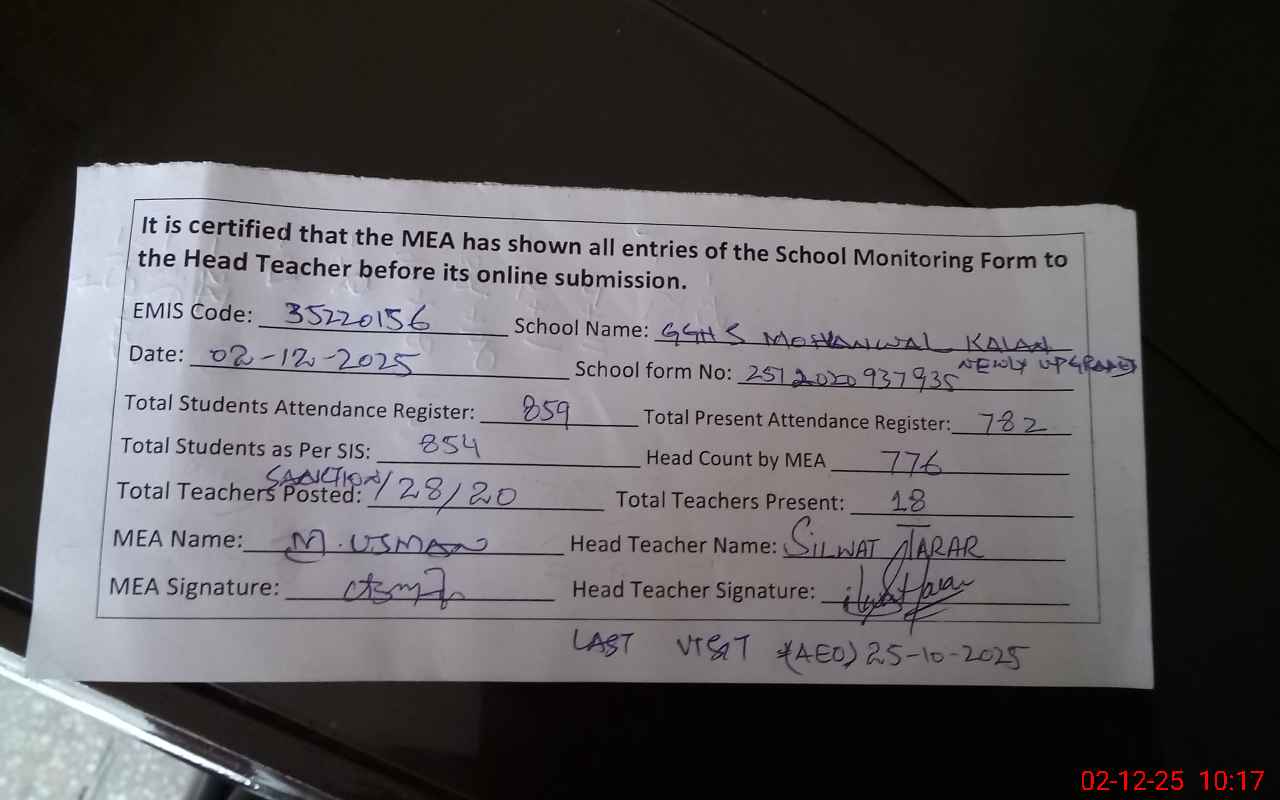 It is certified that the MEA has shown all entries of the School Monitoring Form to
the Head Teacher before its online submission.
EMIS Code: 35220156 School Name: GGHS MOHANWAL KALAN
NEWLY UPGRADED
Date: 02-12-2025 School form No: 2512020937935
Total Students Attendance Register: 859 Total Present Attendance Register: 782
Total Students as Per SIS: 854 Head Count by MEA 776
SANCTION
Total Teachers Posted: /28/20 Total Teachers Present: 18
MEA Name: M. USMAN Head Teacher Name: SILWAT TARAR
MEA Signature: Head Teacher Signature:
LAST VISIT (AEO) 25-10-2025
02-12-25 10:17